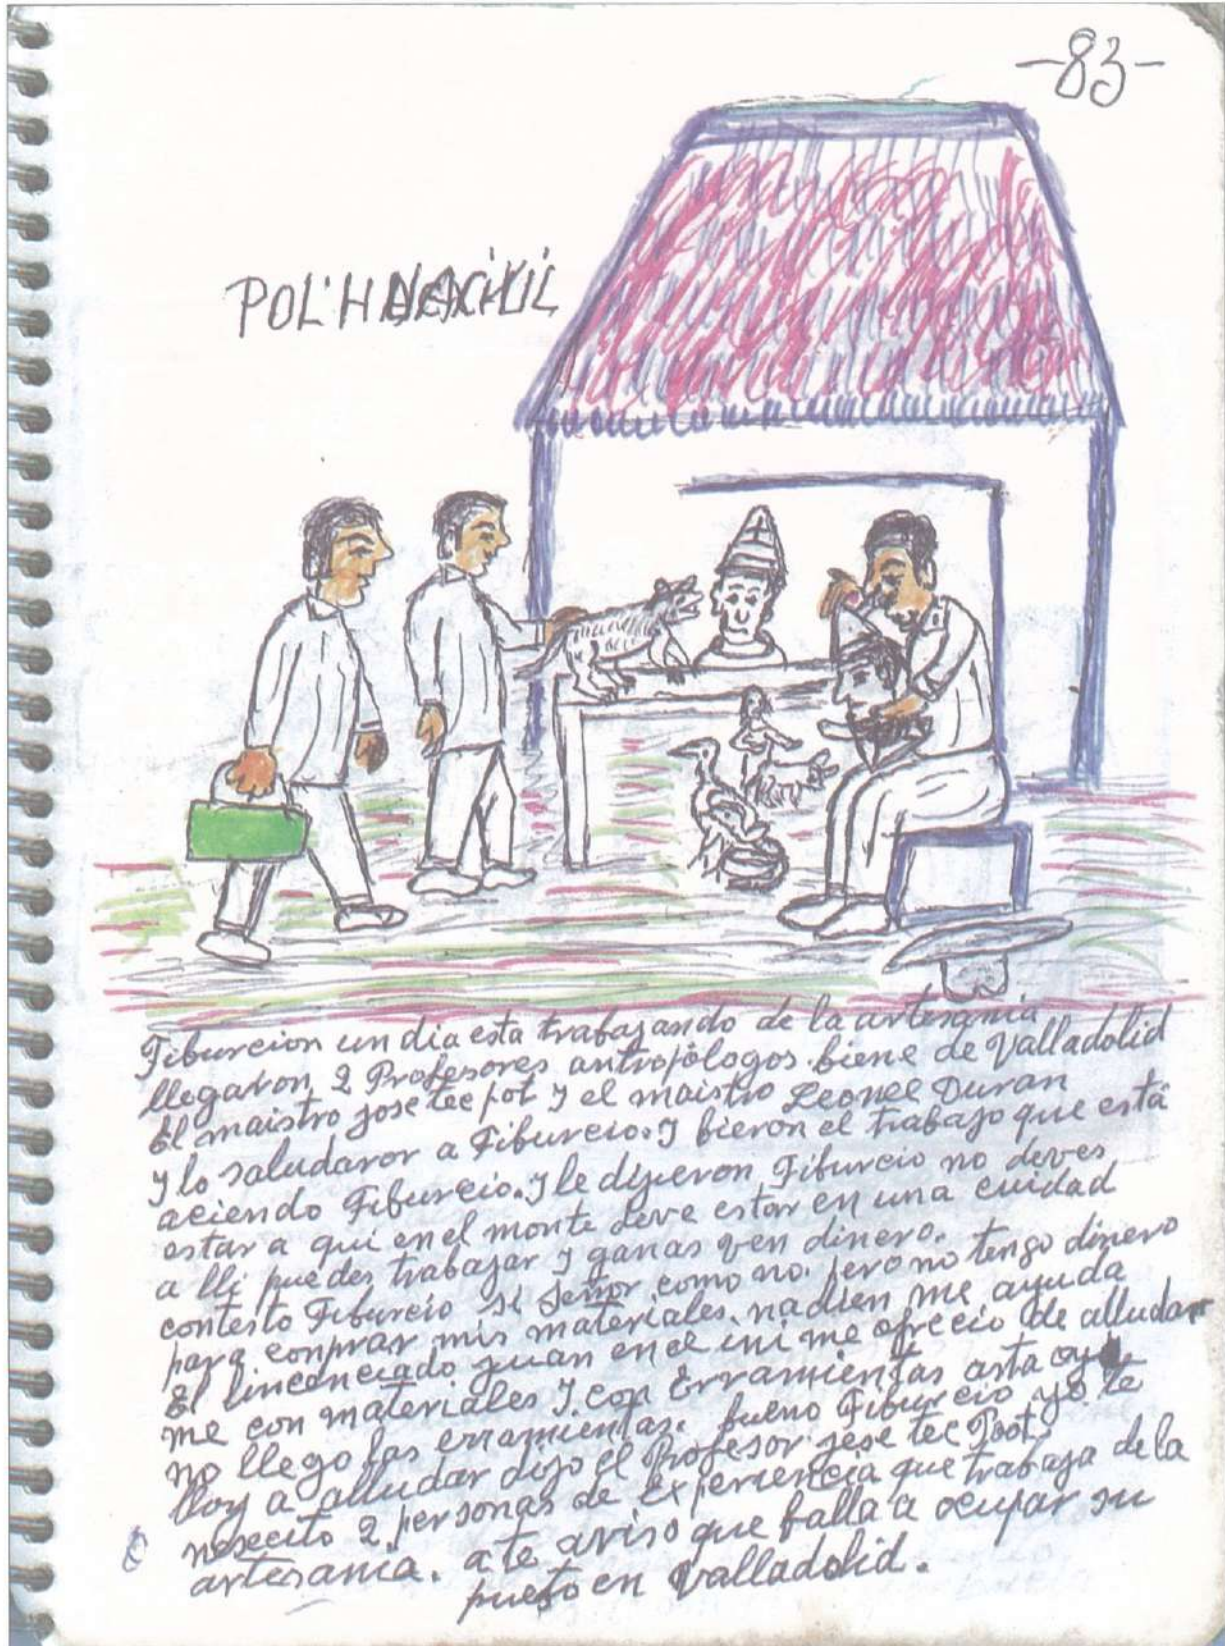 -83-
POL'H
Tiburcion un dia esta trabajando de la artesania
llegaron 2 Profesores antropólogos biene de Valladolid
El maistro jose tec pot y el maistro Leonel Duran
y lo saludaror a Tiburcio. y bieron el trabajo que está
aciendo Tiburcio. y le dijeron Tiburcio no deves
estar a qui en el monte deve estar en una cuidad
a lli puedes trabajar y ganas ven dinero.
contesto Tiburcio si señor como no. pero no tengo dinero
para conprar mis materiales. nadien me ayuda
El linconciado juan en el ini me ofrecio de alludar
me con materiales y con Erramientas asta
no llego las erramientas. bueno Tiburcio yo te
voy a alludar dijo el Profesor jose tec Poot.
nesecito 2 personas de Experiencia que trabaja de la
artesania. a te aviso que balla a ocupar su
puesto en Valladolid.